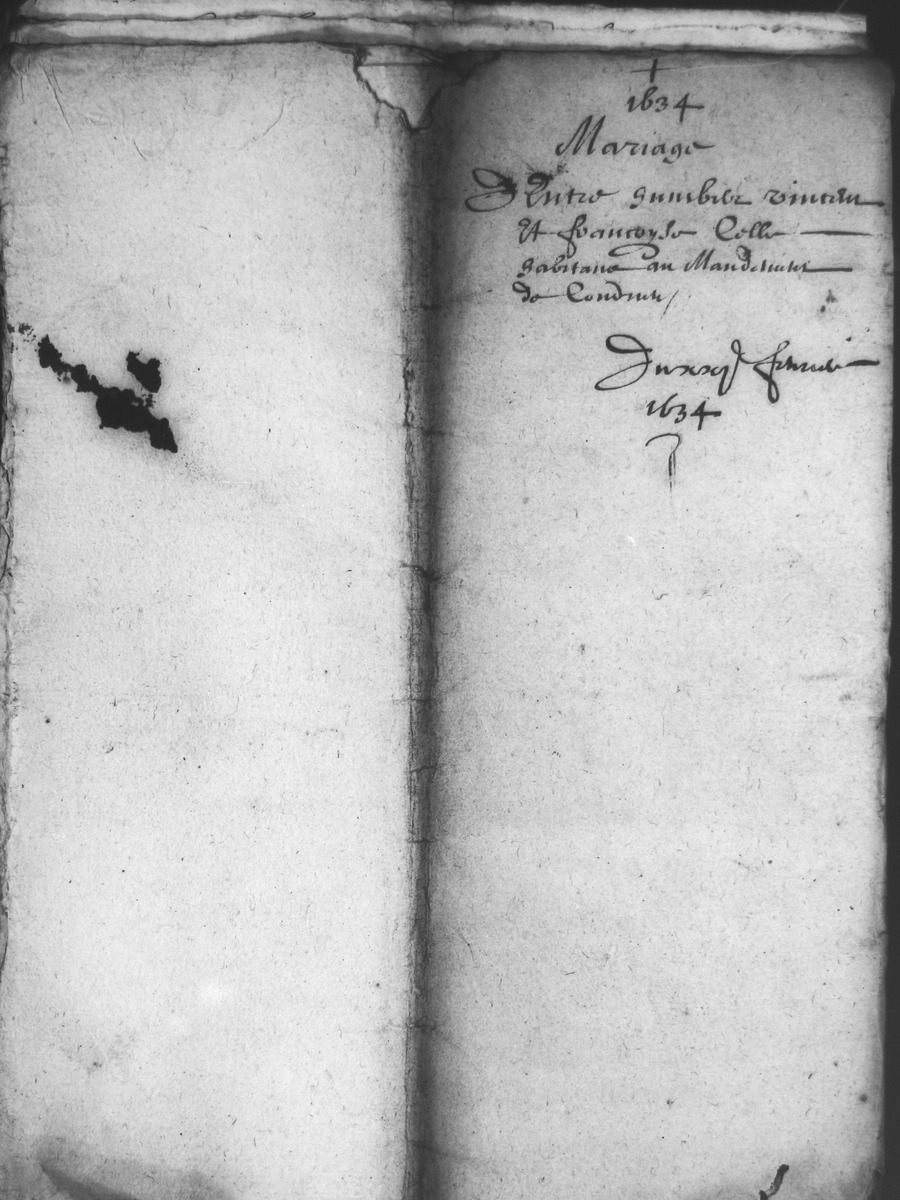 1634
Mariage
D'Entre humbert vincen
Et francoyse Celle
habitans au Mandement
de Condrieu
Du xxj febvrier
1634